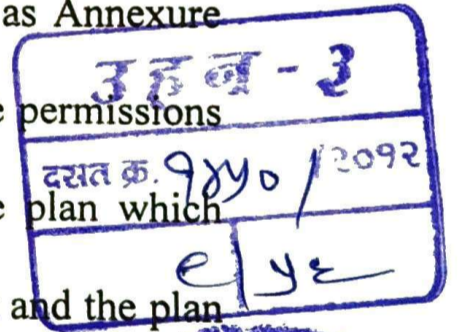 as Annexure
उहन - ३
e permissions
दस्त क्र. १४५० / २०१२
e plan which
९ | ५६
and the plan